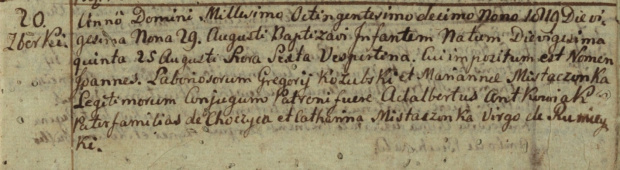 20.
Zberki.
Anno Domini Millesimo Octingentesimo decimo Nono 1819 Die vi-
gesima Nona 29. Augusti Baptizavi Infantem Natum Die vigesima
quinta 25 Augusti Hora Sexta Vespertina. Cui impozitum est Nomen
Joannes. Laboriosorum Gregorij Kozubski et Mariannæ Mistaczonka
Legitimorum Conjugum Patroni fuere Adalbertus Antkowiak
Paterfamilias de Choczyca et Catharina Mistaczonka Virgo de
ki.